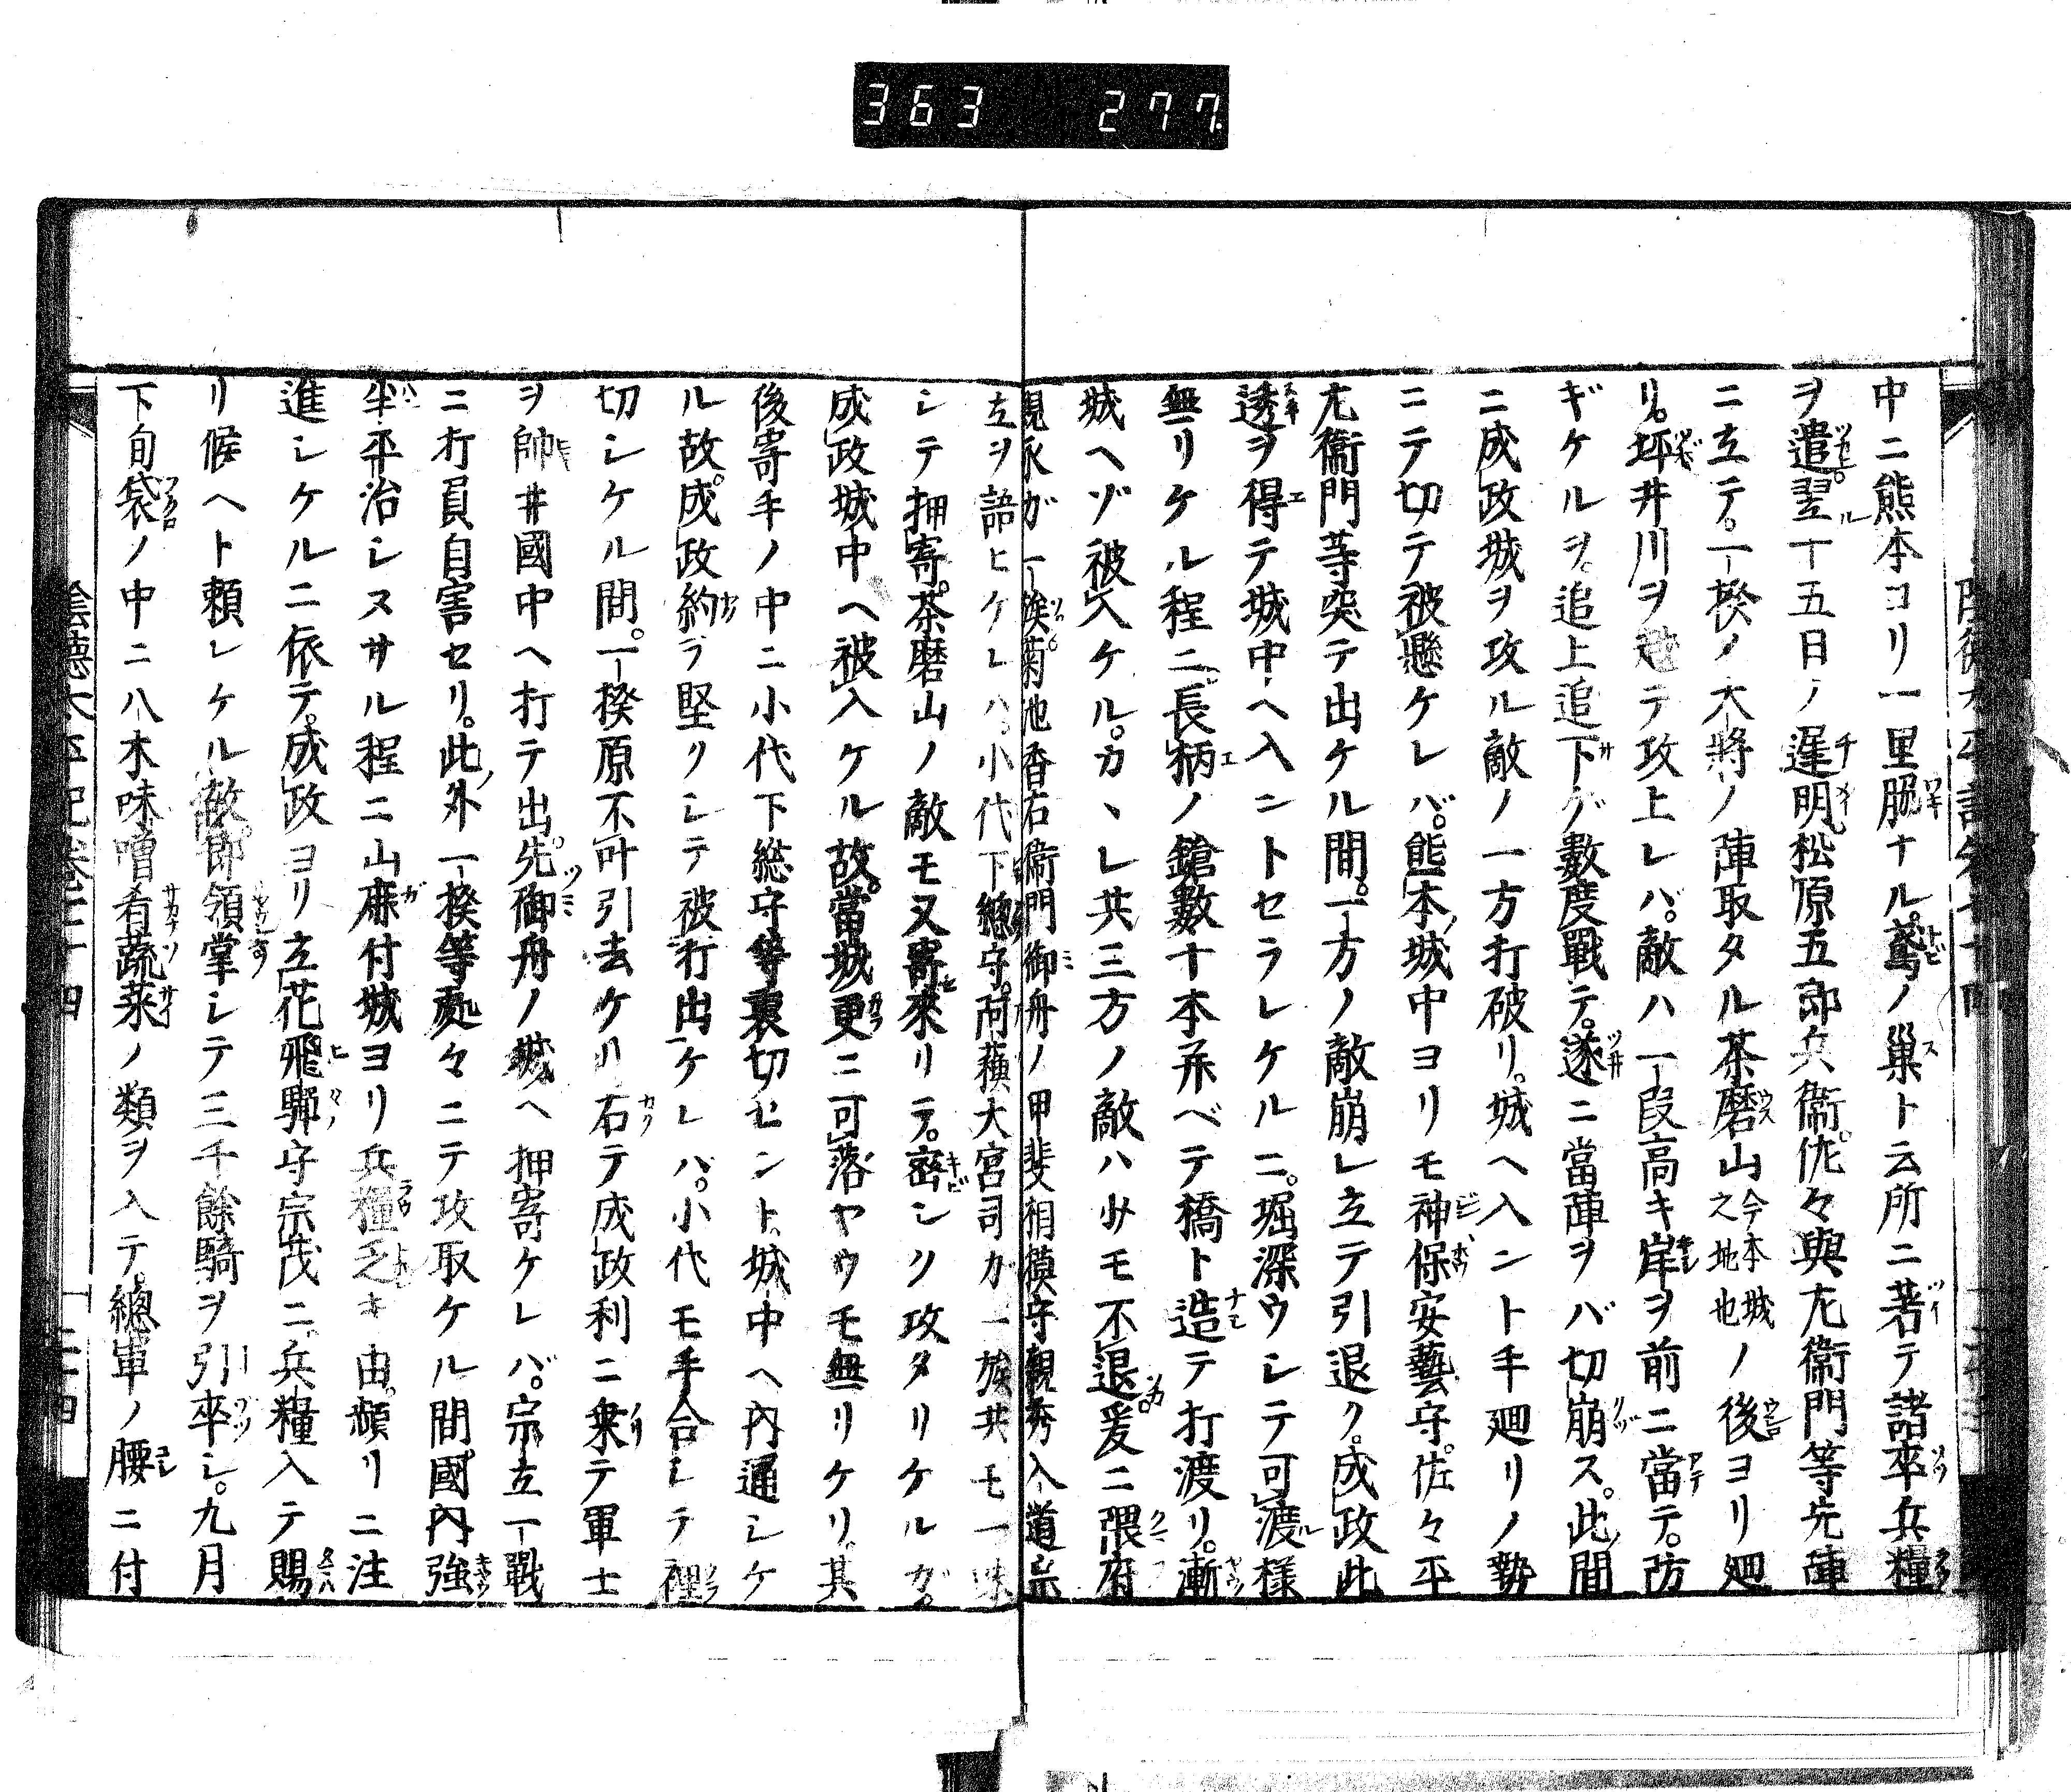 363 277.
中ニ熊本ヨリ一里脇ナル。鳶ノ巢ト云所ニ著テ諸卒兵糧
ヲ遣。翌十五日ノ遲明。松原五郎兵衞。佐々與左衞門等先陣
ニ立テ。一揆ノ大將ノ陣取タル茶磨山今本城之地也ノ後ヨリ廻
リ。坪井川ヲ越テ攻上レバ。敵ハ一段高キ岸ヲ前ニ當テ。防
ギケルヲ。追上追下ゲ數度戰テ。遂ニ當陣ヲバ切崩ス。此間
ニ成政城ヲ攻ル敵ノ一方打破リ。城ヘ入ント手廻リノ勢
ニテ切テ被懸ケレバ。熊本城中ヨリモ神保安藝守。佐々平
左衞門等突テ出ケル間。一方ノ敵崩レ立テ引退ク。成政此
透ヲ得テ城中ヘ入ントセラレケルニ。堀深ウシテ可渡樣
無リケル程ニ。長柄ノ鎗數十本并ベテ橋ト造テ打渡リ。漸
城ヘゾ被入ケル。カヽレ共三方ノ敵ハ少モ不退爰ニ隈府
親永ガ一族菊池香右衞門御舟ノ甲斐相模守親秀入道宗
立ヲ語ヒケレハ。小代下總守。阿蘓大宮司カ一族共モ一味
シテ押寄。茶磨山ノ敵モ又寄來リテ。密シク攻タリケルガ。
成政城中ヘ被入ケル故。當城更ニ可落ヤウモ無リケリ。其
後寄手ノ中ニ小代下総守等裏切セント。城中ヘ内通シケ
ル故。成政約ヲ堅クシテ被打出ケレバ。小代モ手合シテ裡
切シケル間。一揆原不叶引去ケリ右テ成政利ニ乗テ軍士
ヲ帥井國中ヘ打テ出。先御舟ノ城ヘ押寄ケレバ。宗立一戰
ニ打負自害セリ。此外一揆等處々ニテ攻取ケル間國内強
半平治シヌサル程ニ山麻付城ヨリ兵糧乏キ由。頻リニ注
進シケルニ依テ。成政ヨリ立花飛驒守宗茂ニ兵糧入テ賜
リ候ヘト頼レケル故。即領掌シテ三千餘騎ヲ引卒シ。九月
下旬袋ノ中ニ八木味噌肴蔬菜ノ類ヲ入テ。總軍ノ腰ニ付
陰德太平記卷七十四